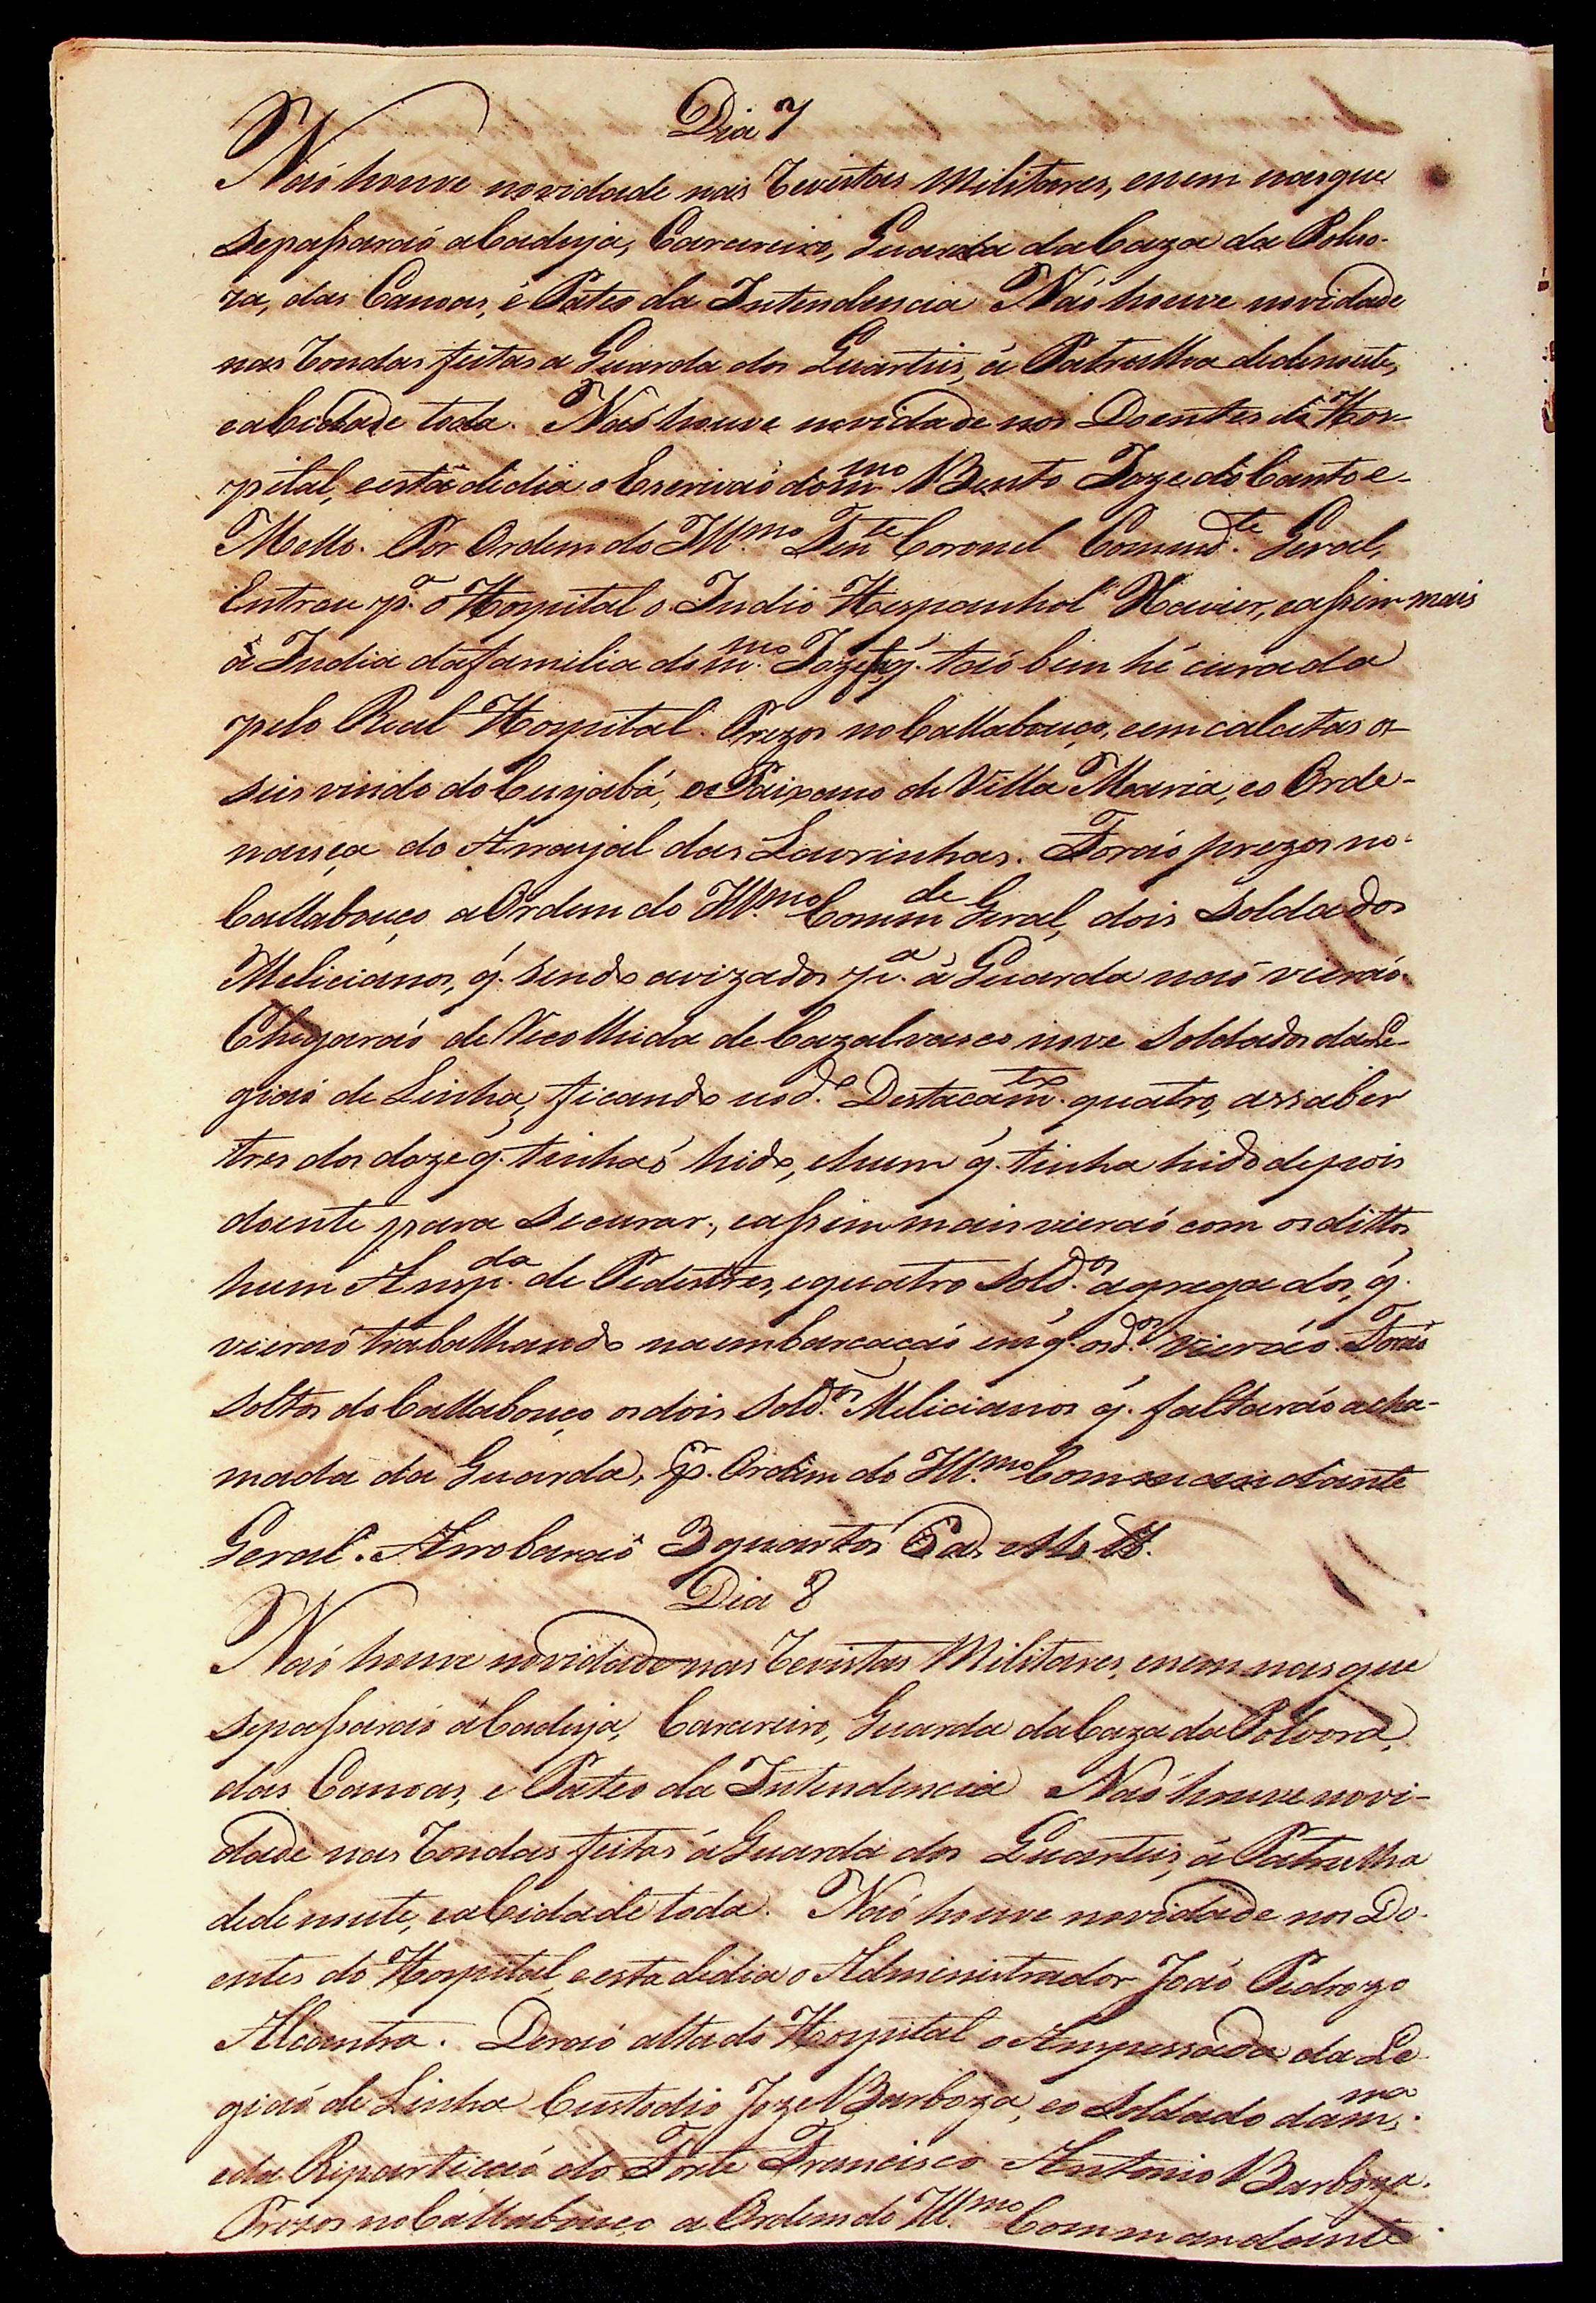 Dia 7
Naõ houve novidade nas Revistas Militares, enem nasque
sepassaraõ aCaduja, Carareiro, Guarda daCaza da Polvo-
ra, das Canoas, e Pateo da Intendencia Naõ houve novidade
nas Rondas feitas a Guarda dos Quarteis, á Patrulha dedenoute,
eaCidade toda. Naõ houve novidade nos Doentes do Hos-
pital, eestá dedia oEscrivaõ dom.mo Bento Joze do Canto e
Mello. Por Ordem do Ill.mo Ten.te Coronel Comand.te Geral,
Entrou p.a o Hospital o Indio Hespanhol Xavier, eassim mais
a India dafamilia do m.mo Joze q̃. taõ bem hé curada
pelo Real Hospital. Prezos no Callabouço, eem calcetas os
seis vindo do Cuyabá, o Paizano de Villa Maria, eo Orde-
nança do Arrayal das Lavrinhas. Foraõ prezos no
Callabouço aOrdem do Ill.mo Comm.de Geral, dois Soldados
Melicianos, q̃. sendo avizados p.a a Guarda naõ vieraõ.
Chegaraõ de Vécolhida de Cazalvasco nove Soldados da Le-
giaõ de Linha, ficando no d.o Destacam.to quatro, assaber
tres dos doze q̃. tinhaõ hido, ehum q̃. tinha hido depois
doente para securar, eassim mais vieraõ com os dittos
hum Ansp.da de Pedestres, equatro Sold.os agregados, q̃.
vieraõ trabalhando naembarcaçaõ emq̃. os d.os Vieraõ. Foraõ
soltos do Callabouço os dois Sold.os Melicianos q̃. faltaraõ acha-
mada da Guarda, p.r Ordem do Ill.mo Commandante
Geral. Arrobaraõ 3 quartos
Dia 8
Naõ houve novidade nas Revistas Militares, enem nasque
sepassaraõ áCaduja, Carareiro, Guarda daCaza da Polvora,
das Canoas, e Pateo da Intendencia Naõ houve novi-
dade nas Rondas feitas á Guarda dos Quarteis, á Patrulha
dedenoute, eaCidade toda. Naõ houve novidade nos Do-
entes do Hospital, eesta dedia o Administrador Joaõ Pedrozo
Alcantra. Deraõ alta do Hospital o Anspessada da Le
giaõ de Linha Custodio Joze Barboza, eo Soldado dam.ma
eda Repartiçaõ do Forte Francisco Antonio Barboza.
Prezos no Callabouço a Ordem do Ill.mo Commandante